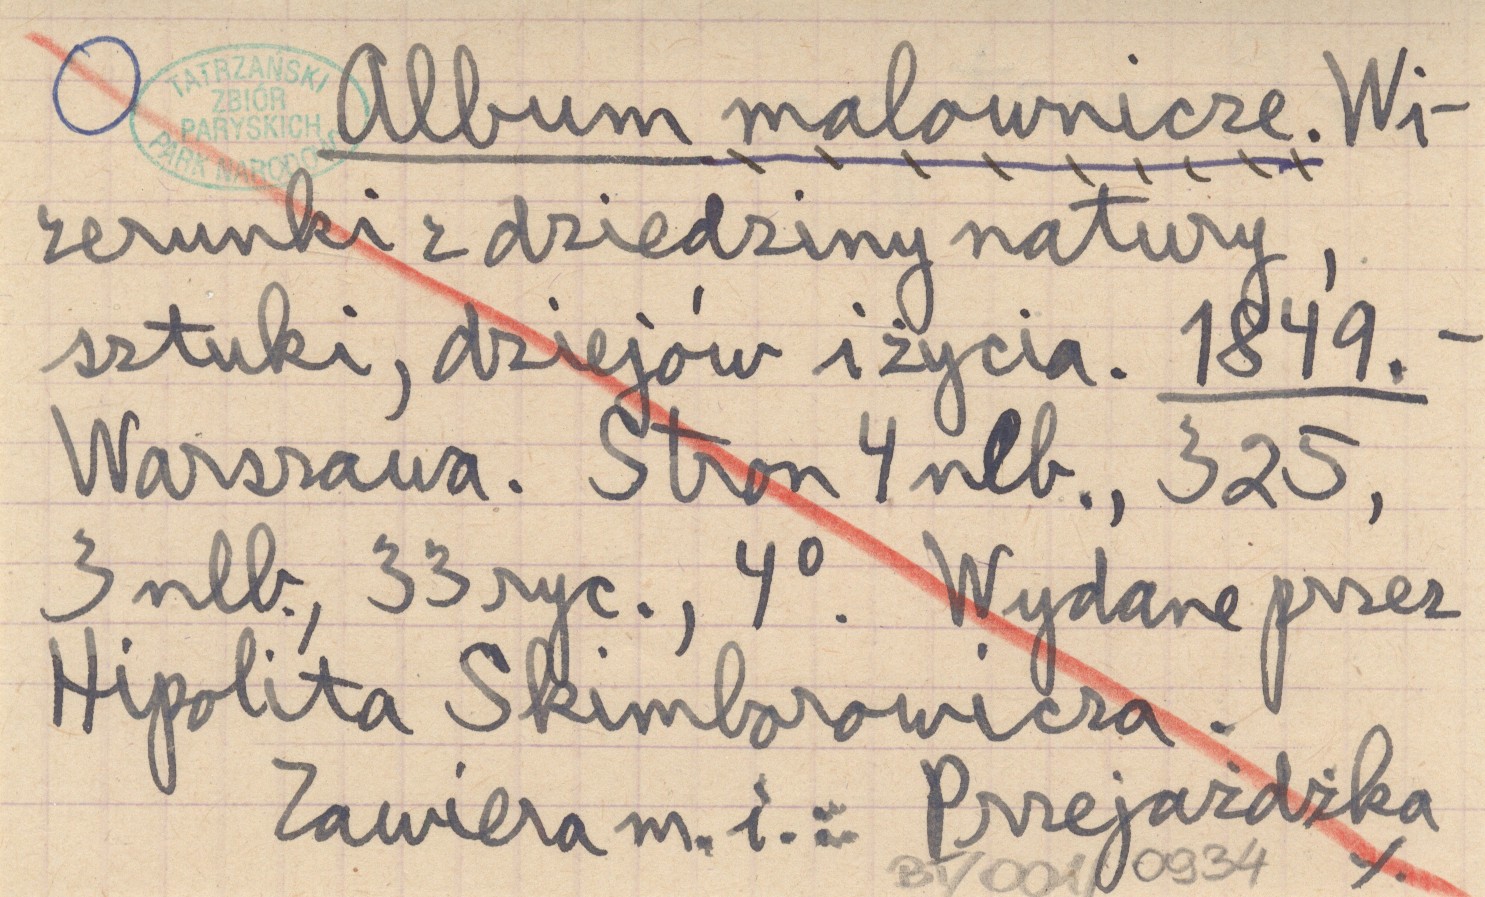 TATRZAŃSKI
ZBIÓR
PARYSKICH
PARK NARODOWY
Album malownicze. Wi-
zerunki z dziedziny natury,
sztuki, dziejów i życia. 1849. -
Warszawa. Stron 4 nlb., 325,
3 nlb., 33 ryc., 4°. Wydane przez
Hipolita Skimborowicza.
Zawiera m. i.: Przejażdżka
BT/001/0934
·/.